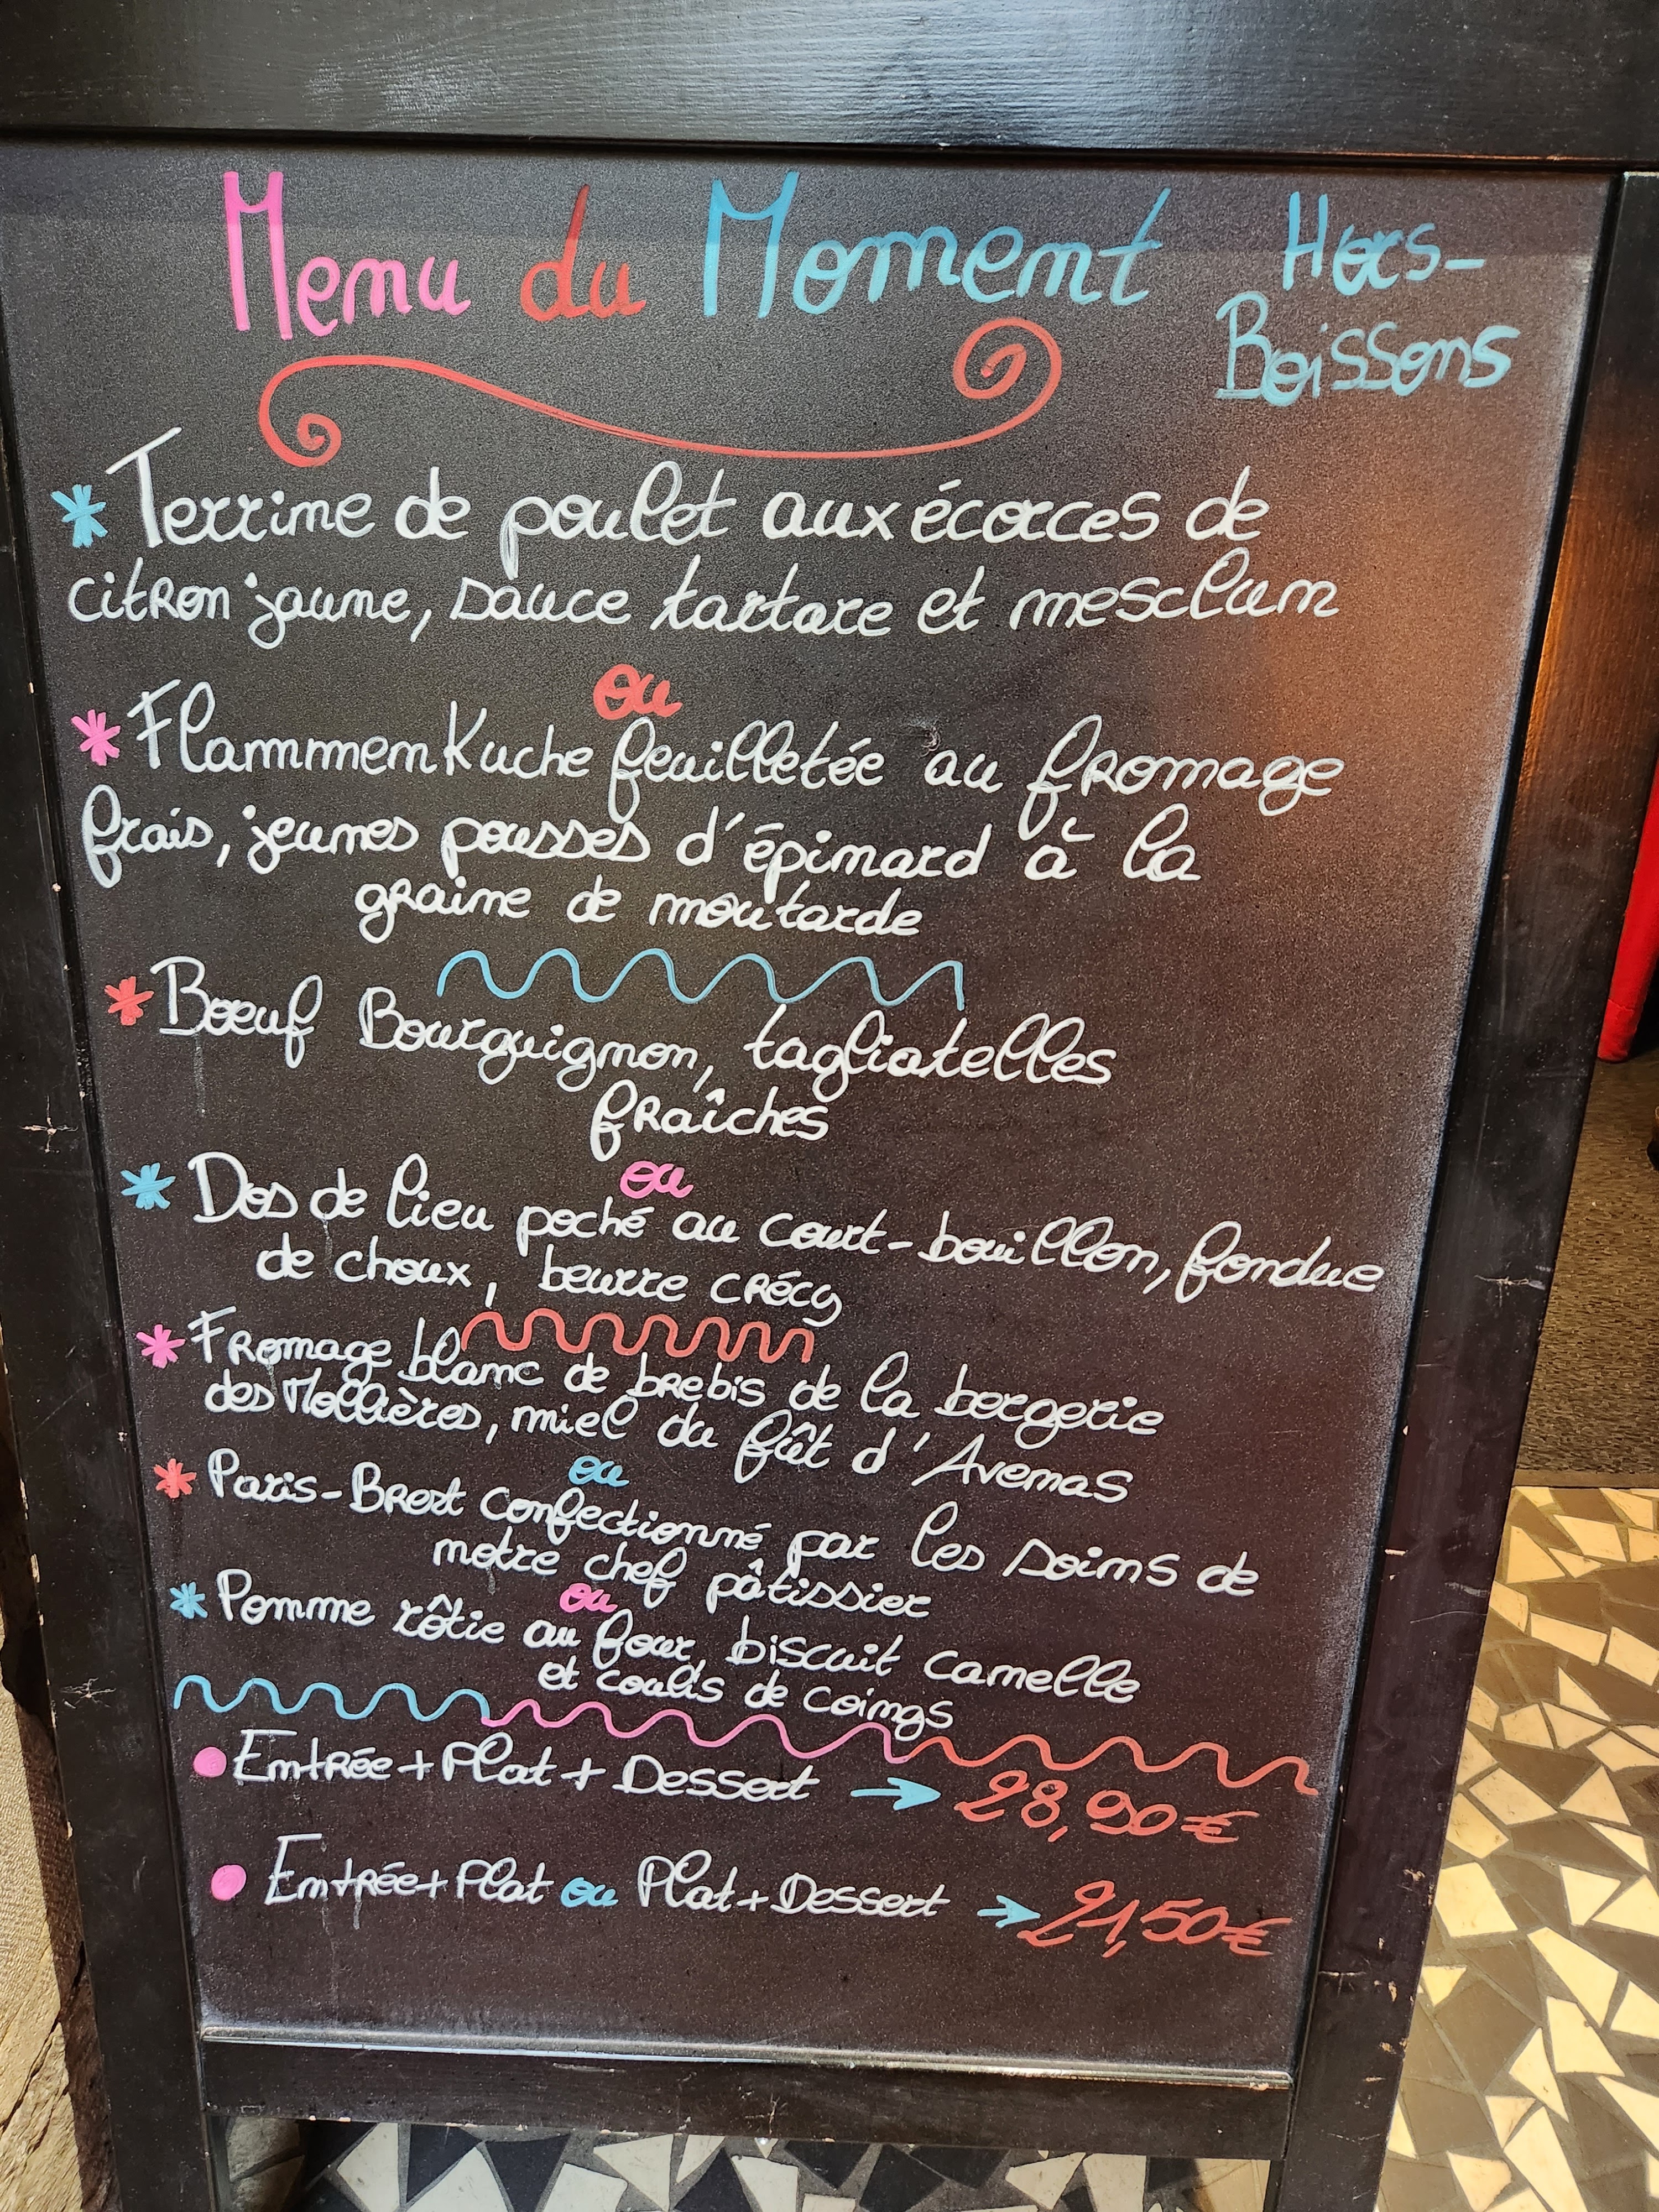 Menu du Moment
Hors-
Boissons
* Terrine de poulet aux écorces de
citron jaune, sauce tartare et mesclun
ou
* Flammenkuche feuilletée au fromage
frais, jeunes pousses d'épinard à la
graine de moutarde
* Boeuf Bourguignon, tagliatelles
fraîches
ou
* Dos de lieu poché au court-bouillon, fondue
de choux, beurre crécy
* Fromage blanc de brebis de la bergerie
des Mollières, miel du fût d'Avenas
ou
* Paris-Brest confectionné par les soins de
notre chef pâtissier
ou
* Pomme rôtie au four, biscuit camelle
et coulis de coings
Entrée + Plat + Dessert → 28,90€
Entrée + Plat ou Plat + Dessert → 21,50€